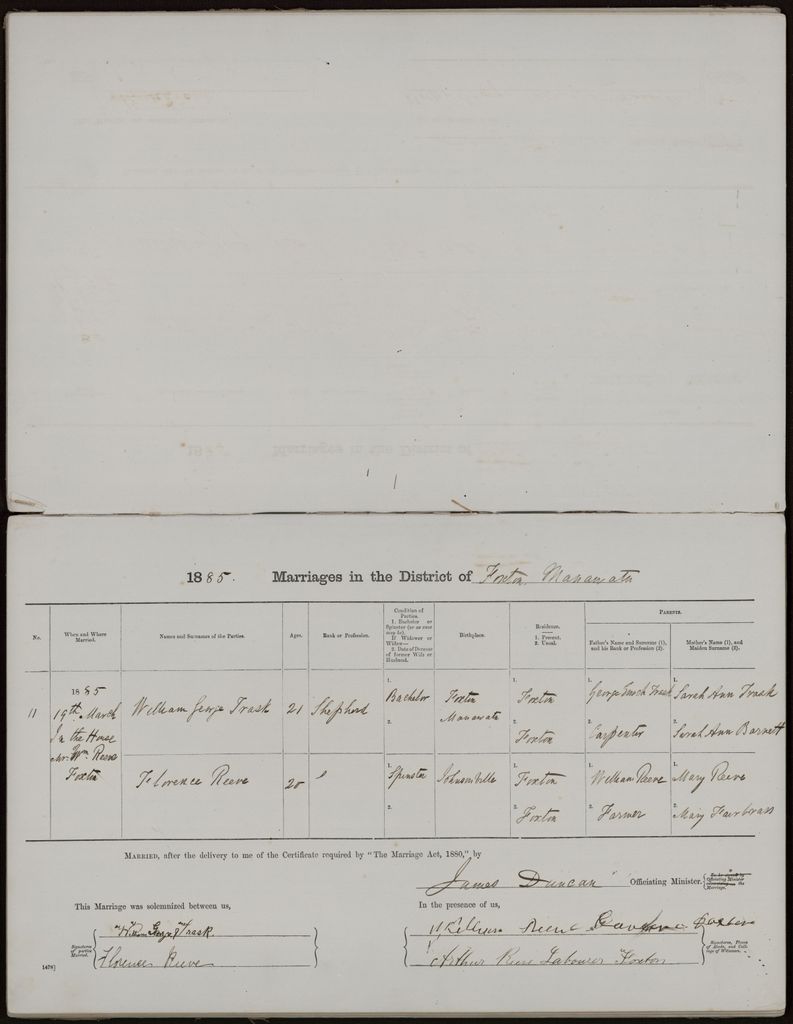 1885. Marriages in the District of Foxton Manawatu
No.
When and Where Married.
Names and Surnames of the Parties.
Ages.
Rank or Profession.
Condition of Parties.
1. Bachelor or Spinster (or as case may be).
If Widower or Widow—
2. Date of Decease of former Wife or Husband.
Birthplace.
Residence.
1. Present.
2. Usual.
PARENTS.
Father's Name and Surname (1), and his Rank or Profession (2).
Mother's Name (1), and Maiden Surname (2).
11
1885
19th March
In the House
Mr. Wm. Reeve
Foxton
William George Trask
21
Shepherd
1.
Bachelor
2.
Foxton
Manawatu
1.
Foxton
2.
Foxton
1.
George Trask
2.
Carpenter
1.
Sarah Ann Trask
2.
Sarah Ann Barnett
Florence Reeve
20
1.
Spinster
2.
Johnsonville
1.
Foxton
2.
Foxton
1.
William Reeve
2.
Farmer
1.
Mary Reeve
2.
Mary Fairbrass
MARRIED, after the delivery to me of the Certificate required by "The Marriage Act, 1880," by
James Duncan Officiating Minister.
Officiating Minister
the Marriage.
This Marriage was solemnized between us,
In the presence of us,
Signatures of parties Married.
William George Trask
Florence Reeve
William Reeve Foxton
Arthur Reeve Labourer Foxton
Signatures, Places of Abode, and Callings of Witnesses.
1478]